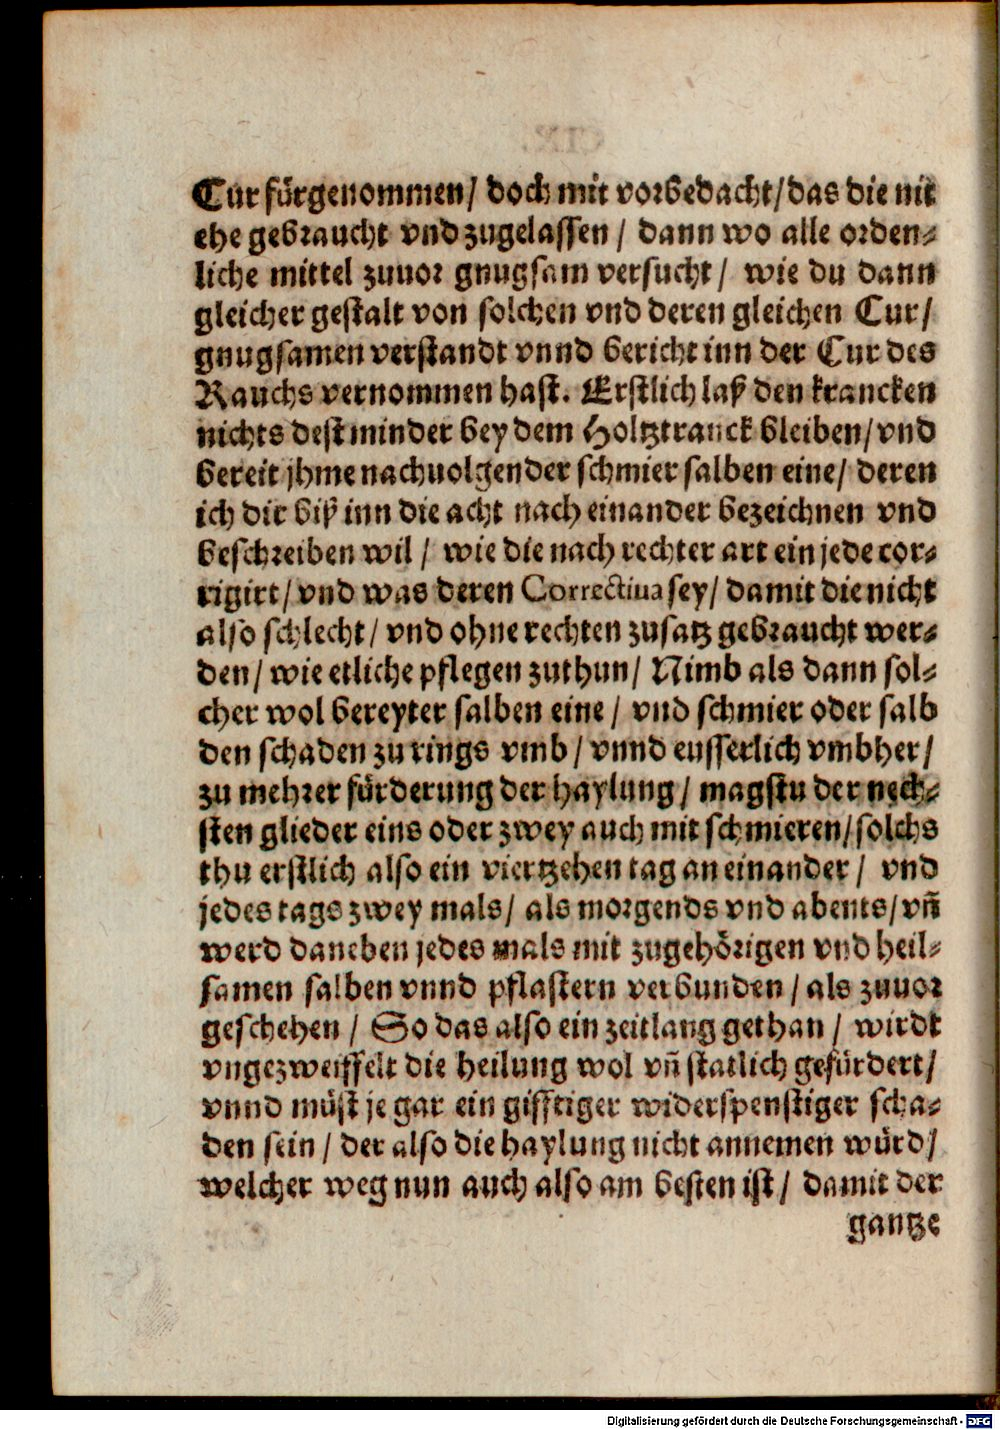 Cur fürgenommen/ doch mit vorbedacht/ das die nit
ehe gebraucht vnd zugelassen / dann wo alle orden-
liche mittel zuuor gnugsam versucht/ wie du dann
gleicher gestalt von solchen vnd deren gleichen Cur/
gnugsamen verstandt vnnd bericht inn der Cur des
Rauchs vernommen hast. Erstlich laß den krancken
nichts dest minder bey dem Holtztranck bleiben/ vnd
bereit jhme nachuolgender schmier salben eine/ deren
ich dir biß inn die acht nach einander bezeichnen vnd
beschreiben wil / wie die nach rechter art ein jede cor-
rigirt/ vnd was deren Correctiua sey/ damit die nicht
also schlecht/ vnd ohne rechten zusatz gebraucht wer-
den/ wie etliche pflegen zuthun/ Nimb als dann sol-
cher wol bereyter salben eine / vnd schmier oder salb
den schaden zu rings vmb / vnnd eusserlich vmbher/
zu mehrer fürderung der haylung/ magstu der nech-
sten glieder eins oder zwey auch mit schmieren/ solchs
thu erstlich also ein viertzehen tag an einander / vnd
jedes tags zwey mals/ als morgends vnd abents/ vñ
werd daneben jedes mals mit zugehörigen vnd heil-
samen salben vnnd pflastern verbunden / als zuuor
geschehen / So das also ein zeitlang gethan / wirdt
vngezweiffelt die heilung wol vñ statlich gefürdert/
vnnd müst je gar ein gifftiger widerspenstiger scha-
den sein / der also die haylung nicht annemen würd/
welcher weg nun auch also am besten ist/ damit der
gantze
Digitalisierung gefördert durch die Deutsche Forschungsgemeinschaft - DFG